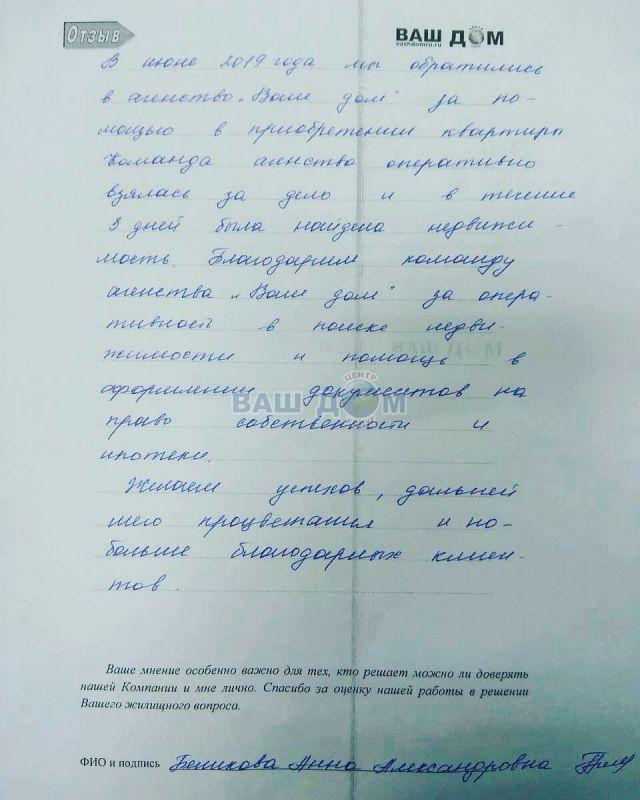 Отзыв
ВАШ ДОМ
vashdomru.ru
В июне 2019 года мы обратились
в агенство "Ваш дом" за по-
мощью в приобретении квартиры
Команда агенства оперативно
взялась за дело и в течение
3 дней была найдена недвижи-
мость. Благодарим команду
агенства "Ваш дом" за опера-
тивность в поиске недви-
жимости и помощь в
оформлении документов на
право собственности и
ипотеки.
Желаем успехов, дальней
шего процветания и по-
больше благодарных клиен-
тов.
ЦЕНТР
ВАШ ДОМ
Ваше мнение особенно важно для тех, кто решает можно ли доверять
нашей Компании и мне лично. Спасибо за оценку нашей работы в решении
Вашего жилищного вопроса.
ФИО и подпись Беликова Анна Александровна